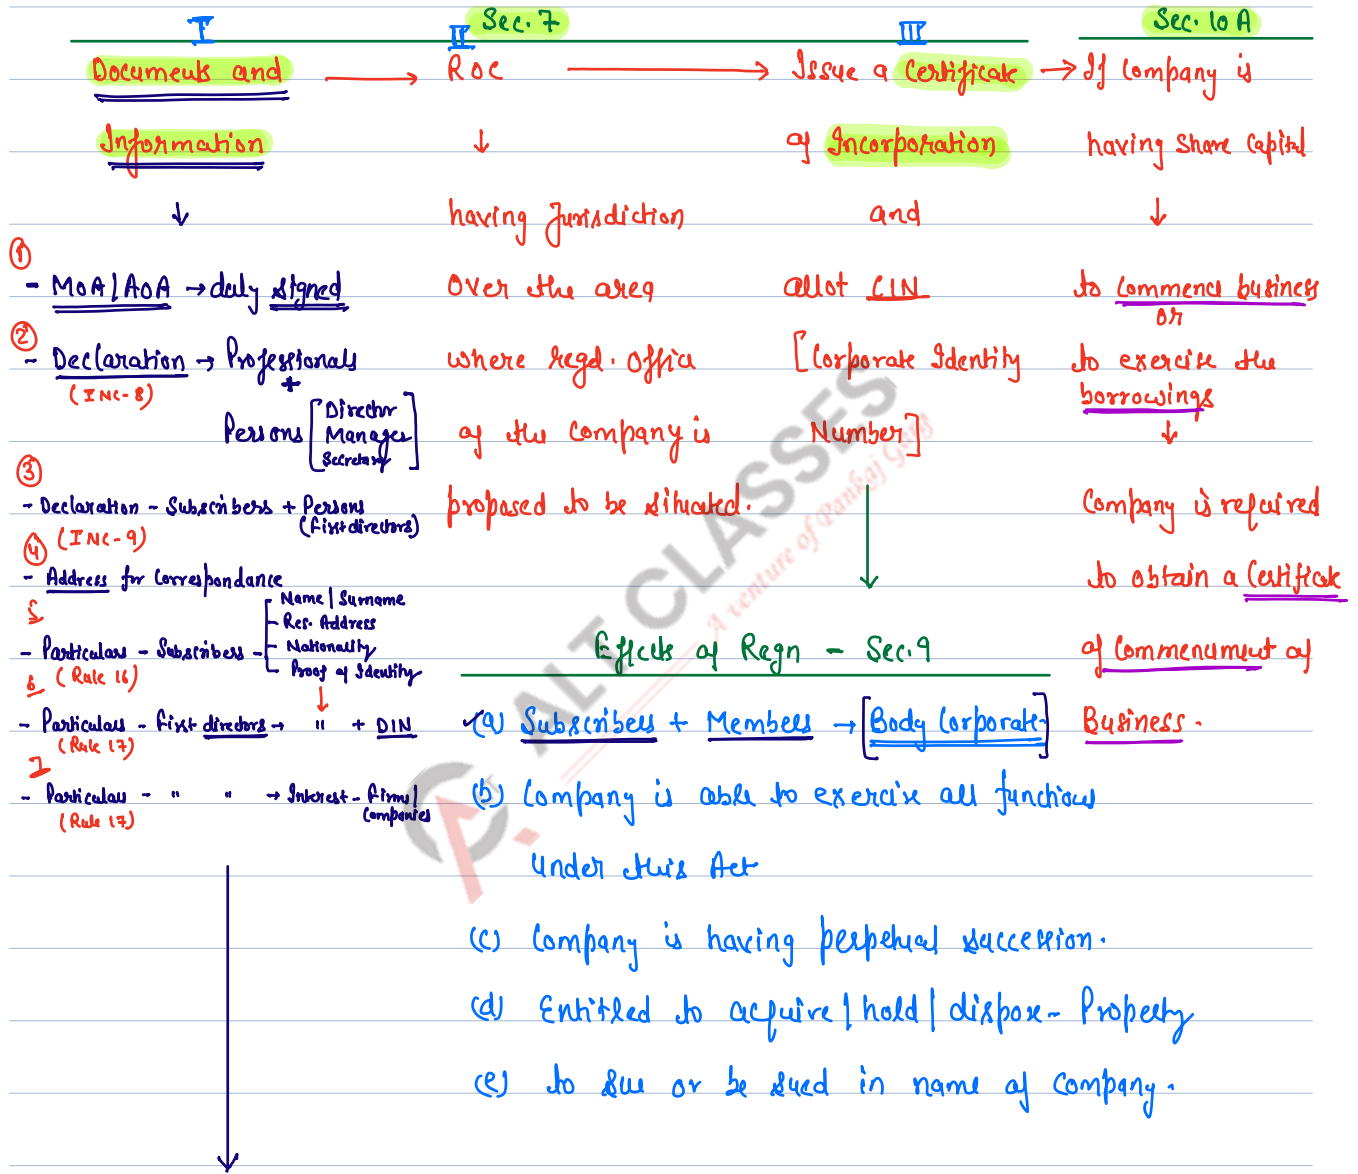 I
II Sec. 7
III
Sec. 10 A
Documents and
Information
- MoA/AoA → duly signed
1
2
- Declaration → Professionals
(INC-8)
+
Persons [Director
Manager
Secretary]
3
- Declaration - Subscribers + Persons
(INC-9)
(first directors)
4
- Address for Correspondance
5
- Particulars - Subscribers -
(Rule 16)
Name / Surname
- Res. Address
- Nationality
Proof of Identity
6
- Particulars - first directors → " + DIN
(Rule 17)
7
- Particulars - " " → Interest - firms/
Companies
(Rule 17)
→ ROC
having Jurisdiction
over the area
where regd. office
of the Company is
proposed to be situated.
→ Issue a Certificate
of Incorporation
and
allot CIN
[Corporate Identity
Number]
→ If Company is
having share capital
to commence business
or
to exercise the
borrowings
Company is required
to obtain a Certificate
of Commencement of
Business.
Effects of Regn - Sec. 9
(a) Subscribers + Members → [Body Corporate]
(b) Company is able to exercise all functions
under this Act
(c) Company is having perpetual succession.
(d) Entitled to acquire / hold / dispose - Property
(e) to sue or be sued in name of Company.
ALT CLASSES
A venture of Pankaj Garg